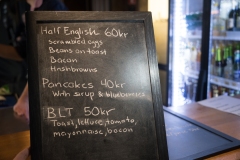 Half English 60kr
scrambled eggs
Beans on toast
Bacon
Hashbrowns
Pancakes 40kr
With syrup & blueberries
BLT 50kr
Toast, lettuce, tomato,
mayonnaise, bacon